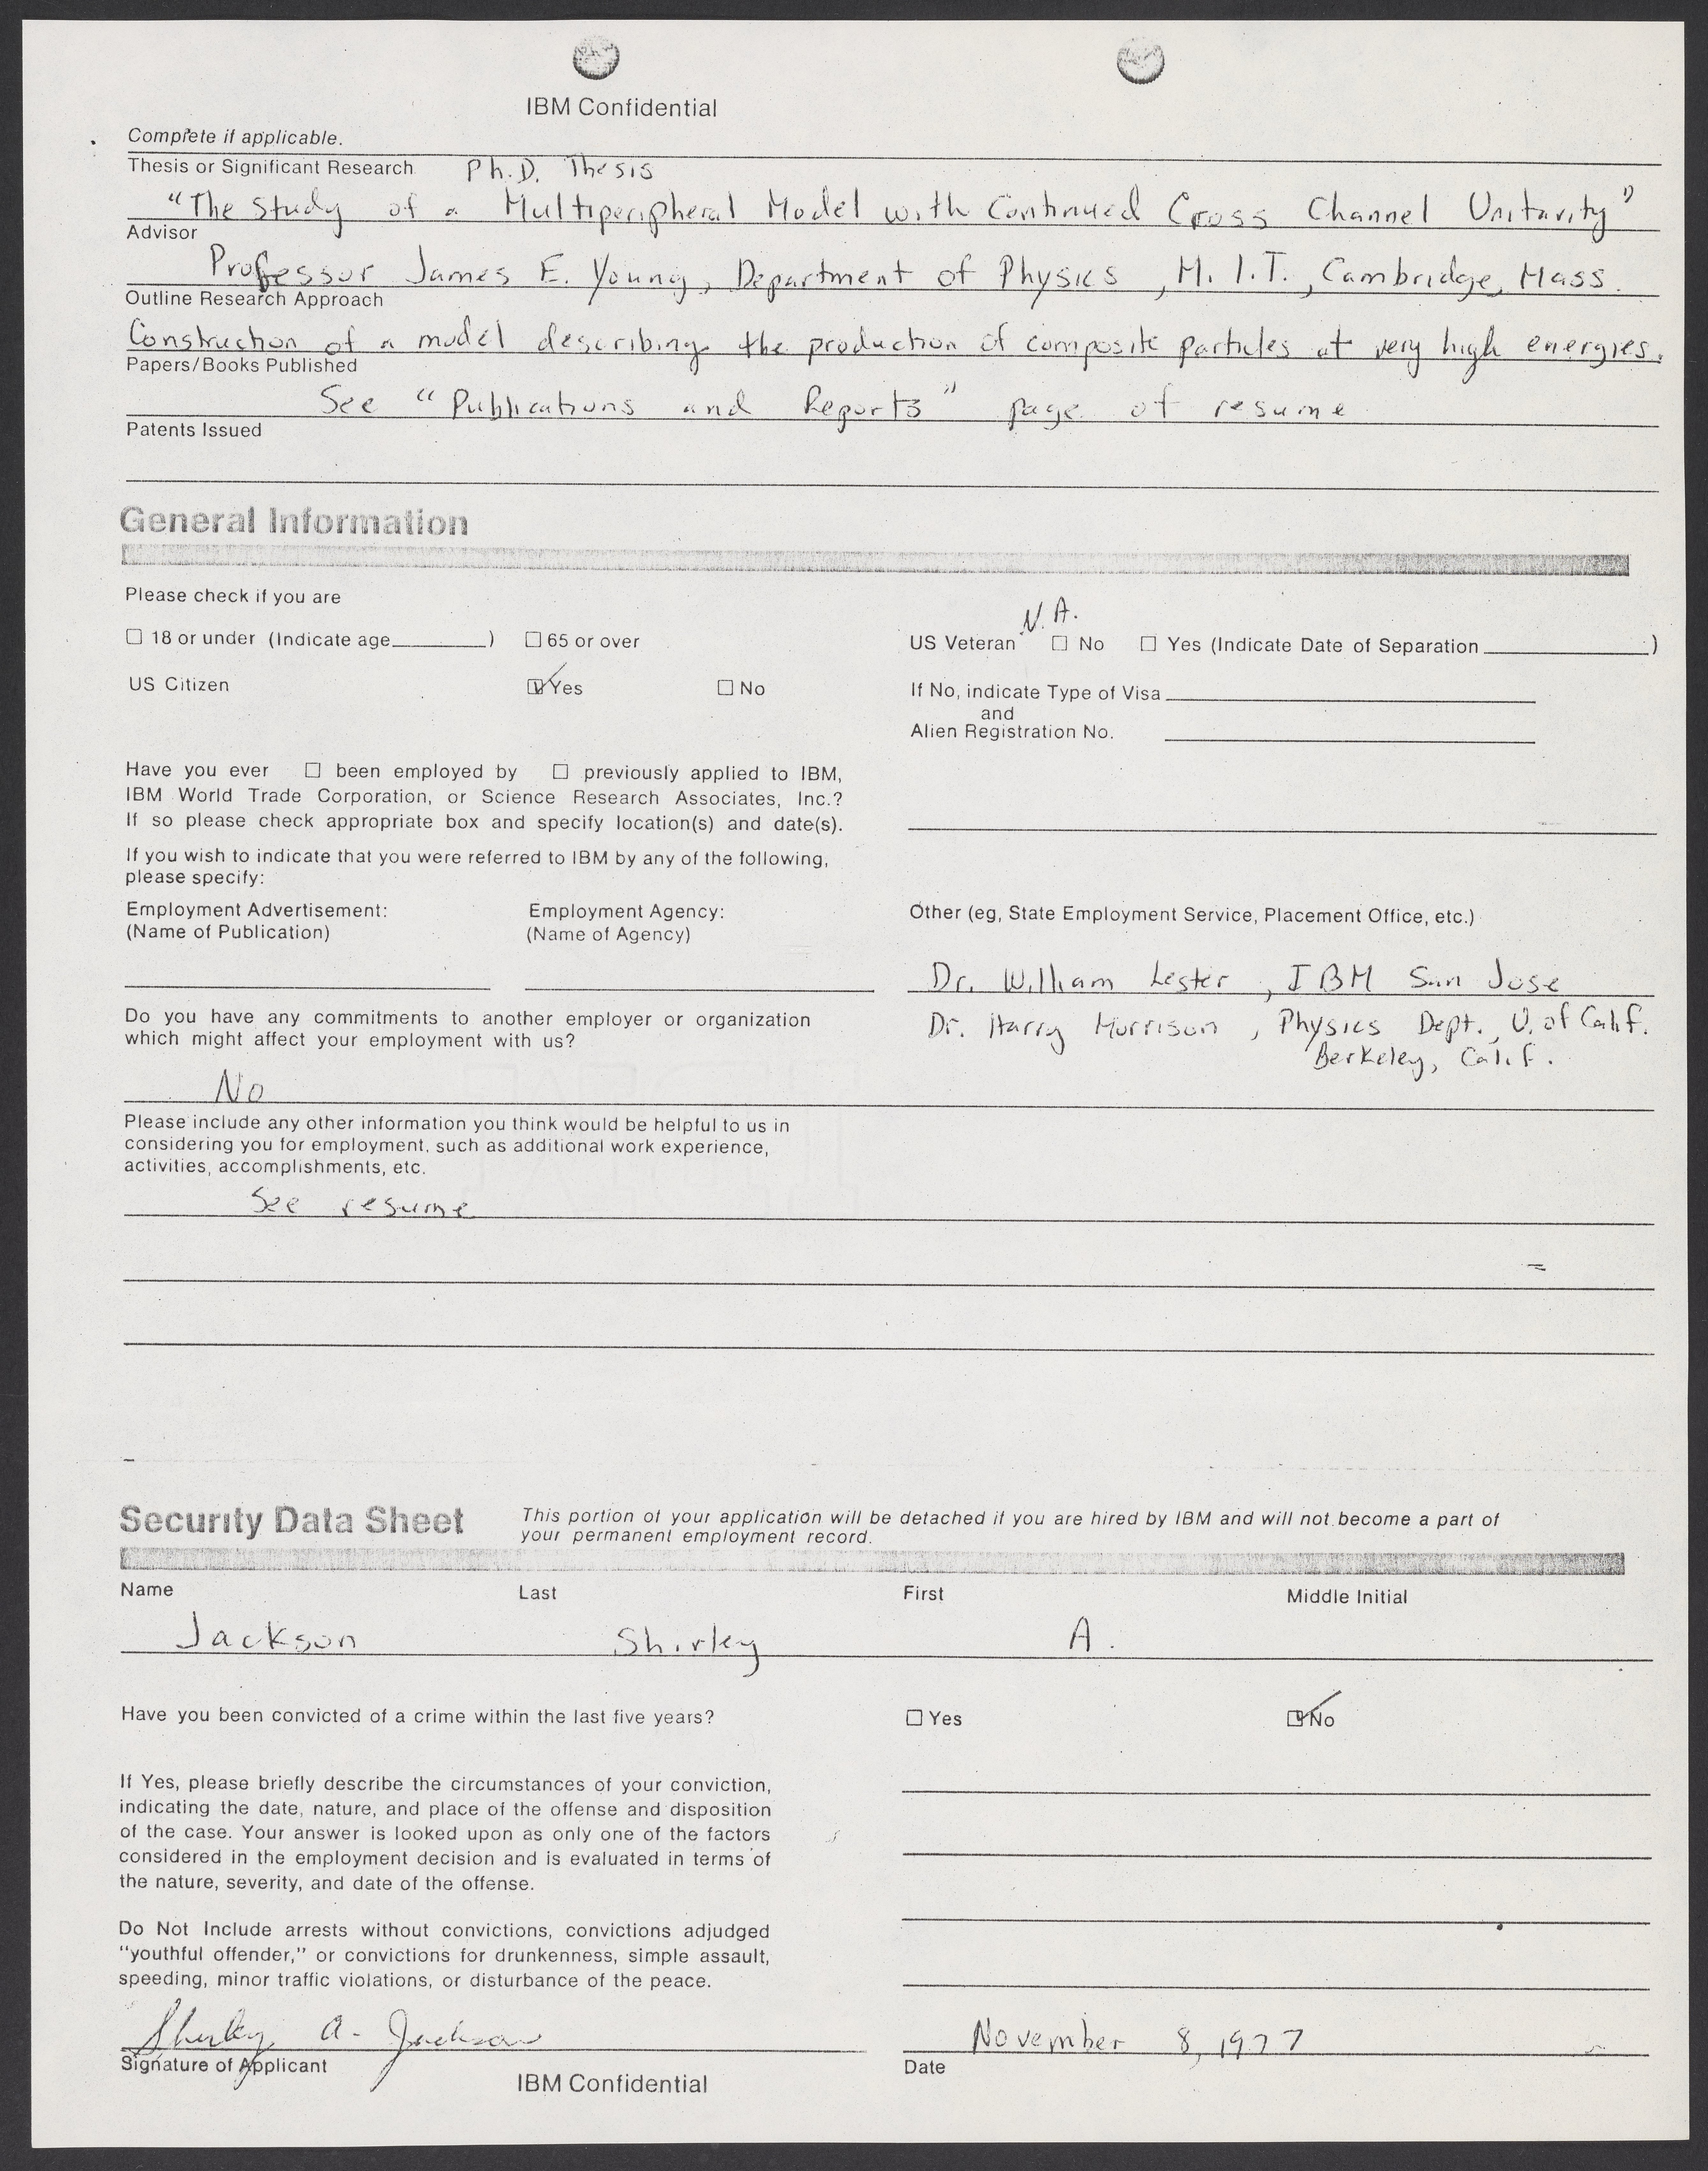 IBM Confidential
Complete if applicable.
Thesis or Significant Research Ph.D. Thesis
"The Study of a Multiperipheral Model with Continued Cross Channel Unitarity"
Advisor
Professor James E. Young, Department of Physics, M.I.T., Cambridge, Mass.
Outline Research Approach
Construction of a model describing the production of composite particles at very high energies.
Papers/Books Published
See "Publications and Reports" page of resume
Patents Issued
General Information
Please check if you are
N.A.
☐ 18 or under (Indicate age ) ☐ 65 or over
US Veteran ☐ No ☐ Yes (Indicate Date of Separation )
US Citizen ☑ Yes ☐ No
If No, indicate Type of Visa
and
Alien Registration No.
Have you ever ☐ been employed by ☐ previously applied to IBM,
IBM World Trade Corporation, or Science Research Associates, Inc.?
If so please check appropriate box and specify location(s) and date(s).
If you wish to indicate that you were referred to IBM by any of the following,
please specify:
Employment Advertisement:
(Name of Publication)
Employment Agency:
(Name of Agency)
Other (eg, State Employment Service, Placement Office, etc.)
Dr. William Lester, IBM San Jose
Dr. Harry Morrison, Physics Dept., U. of Calif.
Berkeley, Calif.
Do you have any commitments to another employer or organization
which might affect your employment with us?
No
Please include any other information you think would be helpful to us in
considering you for employment, such as additional work experience,
activities, accomplishments, etc.
See resume
Security Data Sheet
This portion of your application will be detached if you are hired by IBM and will not become a part of
your permanent employment record.
Name Last First Middle Initial
Jackson Shirley A.
Have you been convicted of a crime within the last five years? ☐ Yes ☑ No
If Yes, please briefly describe the circumstances of your conviction,
indicating the date, nature, and place of the offense and disposition
of the case. Your answer is looked upon as only one of the factors
considered in the employment decision and is evaluated in terms of
the nature, severity, and date of the offense.
Do Not Include arrests without convictions, convictions adjudged
"youthful offender," or convictions for drunkenness, simple assault,
speeding, minor traffic violations, or disturbance of the peace.
Shirley A. Jackson
Signature of Applicant
November 8, 1977
Date
IBM Confidential